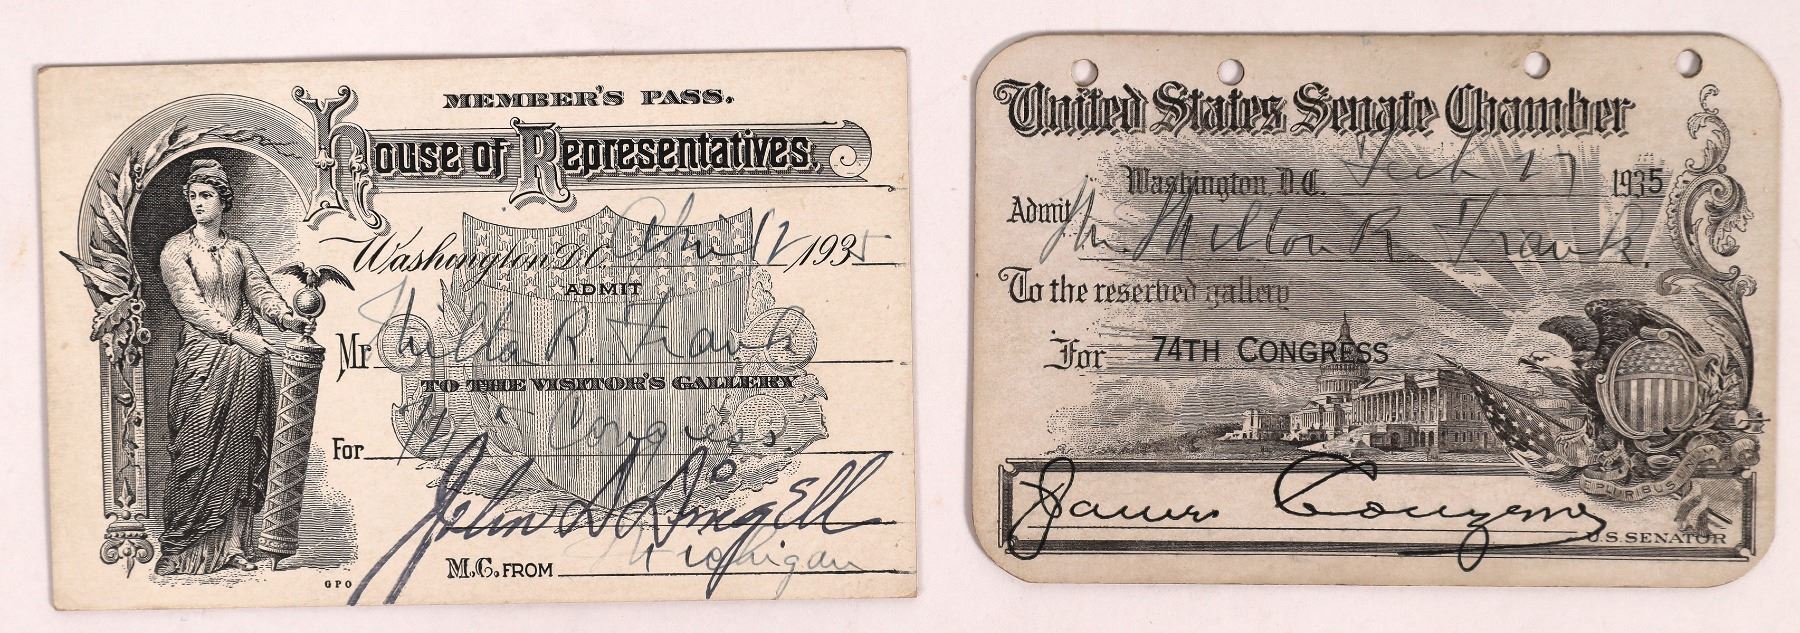 MEMBER'S PASS.
House of Representatives.
Washington D.C. 12 1935
ADMIT
Mr Milton R. Frank
TO THE VISITOR'S GALLERY
For 74 Congress
John D Dingell
M.C. FROM Michigan
GPO
United States Senate Chamber
Washington, D.C. Feb 17 1935
Admit Mr. Milton R. Frank.
To the reserved gallery
For 74TH CONGRESS
E PLURIBUS UNUM
James Couzens
U.S. SENATOR